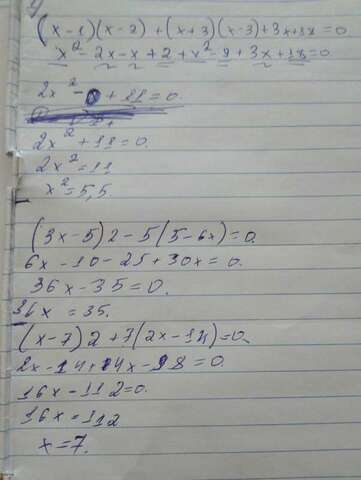 (x-1)(x-2)+(x+3)(x-3)+3x+18=0
x²-2x-x+2+x²-9+3x+18=0
2x²- +11=0.
2x²+11=0.
2x²=11
x²=5,5.
(3x-5)2-5(5-6x)=0.
6x-10-25+30x=0.
36x-35=0.
36x=35.
(x-7)2+7(2x-14)=0.
2x-14+14x-98=0.
16x-112=0.
16x=112
x=7.